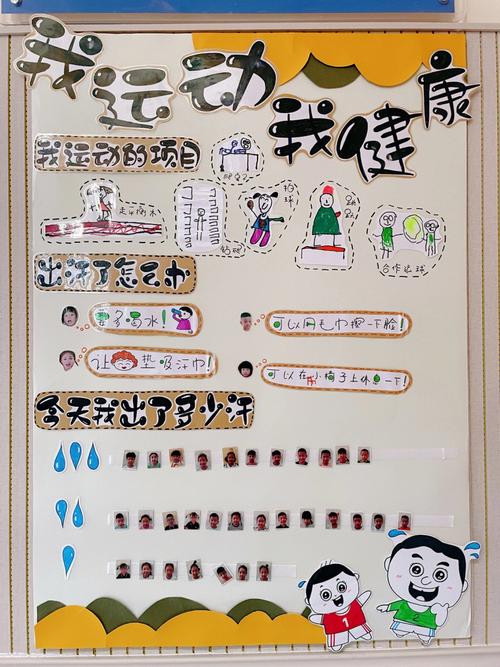 我运动 我健康
我运动的项目
拍球
合作运球
出汗了怎么办
要多喝水!
可以用毛巾擦一下脸!
让垫吸汗巾!
可以在小椅子上休息一下!
今天我出了多少汗
1
2